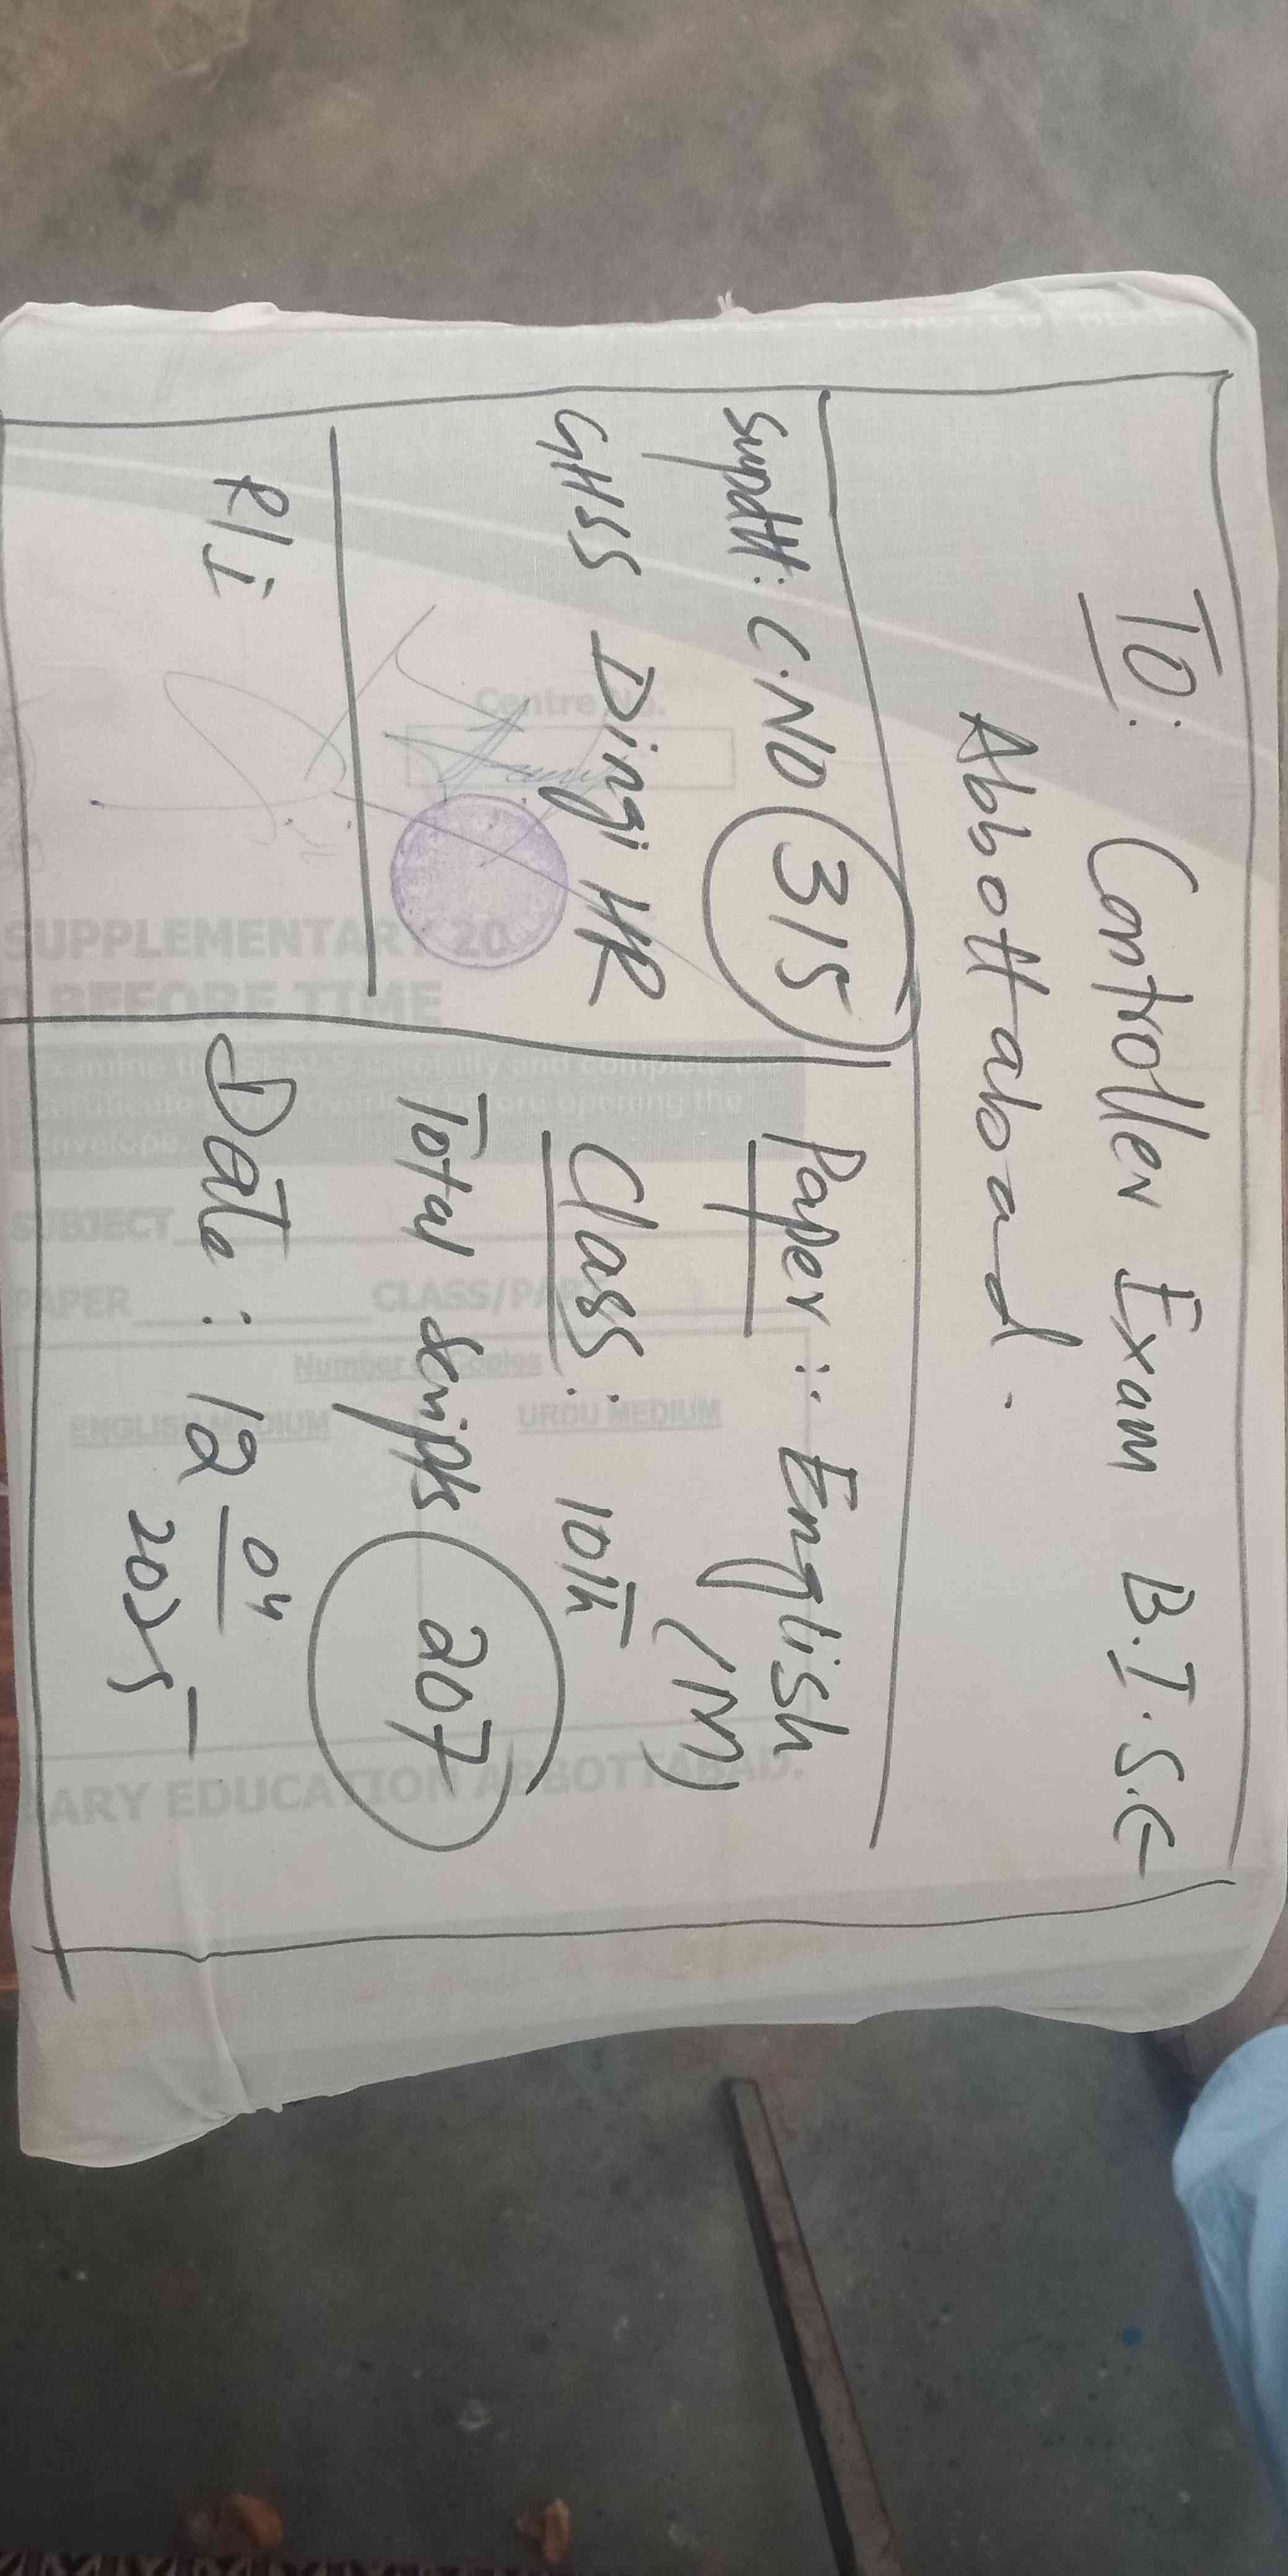 TO: Controller Exam B.I.S.E
Abbottabad.
Supdtt: C.NO 315
GHSS Dingi HR
R/I
Paper: English
(M)
Class: 10th
Total scripts 207
Date: 12 04
2025
Centre No.
SUPPLEMENTARY 20
D BEFORE TIME
carefully and complete the
certificate opening the
envelope.
SUBJECT
PAPER CLASS/PART
Number of Copies
ENGLISH MEDIUM URDU MEDIUM
ARY EDUCATION ABBOTTABAD.